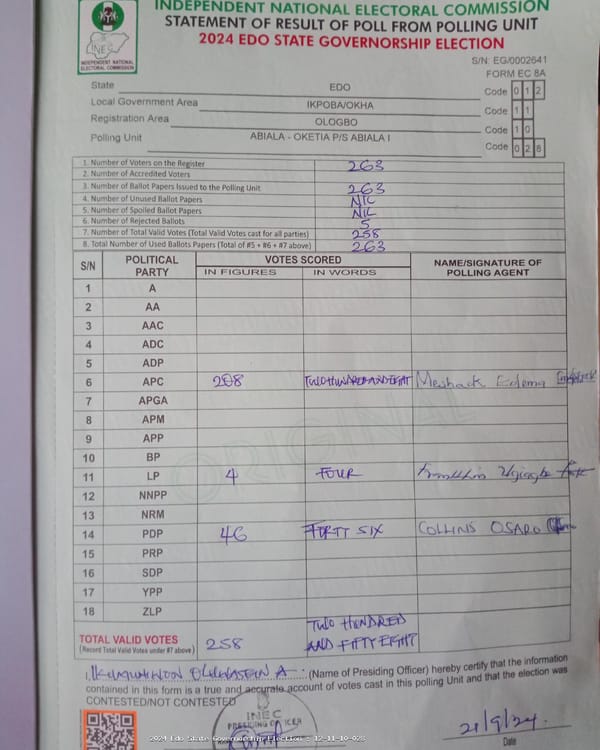 INDEPENDENT NATIONAL ELECTORAL COMMISSION
STATEMENT OF RESULT OF POLL FROM POLLING UNIT
2024 EDO STATE GOVERNORSHIP ELECTION
INEC
INDEPENDENT NATIONAL
ELECTORAL COMMISSION
S/N: EG/0002641
FORM EC 8A
State EDO Code 0 1 2
Local Government Area IKPOBA/OKHA Code 1 1
Registration Area OLOGBO Code 1 0
Polling Unit ABIALA - OKETIA P/S ABIALA I Code 0 2 8
1. Number of Voters on the Register 263
2. Number of Accredited Voters
3. Number of Ballot Papers Issued to the Polling Unit 263
4. Number of Unused Ballot Papers NIL
5. Number of Spoiled Ballot Papers NIL
6. Number of Rejected Ballots 5
7. Number of Total Valid Votes (Total Valid Votes cast for all parties) 258
8. Total Number of Used Ballots Papers (Total of #5 + #6 + #7 above) 263
S/N POLITICAL PARTY VOTES SCORED NAME/SIGNATURE OF POLLING AGENT
IN FIGURES IN WORDS
1 A
2 AA
3 AAC
4 ADC
5 ADP
6 APC 208 TWO HUNDRED AND EIGHT Meshack Edema
7 APGA
8 APM
9 APP
10 BP
11 LP 4 FOUR
12 NNPP
13 NRM
14 PDP 46 FORTY SIX COLLINS OSARO
15 PRP
16 SDP
17 YPP
18 ZLP
TOTAL VALID VOTES 258 TWO HUNDRED AND FIFTY EIGHT
(Record Total Valid Votes under #7 above)
I, (Name of Presiding Officer) hereby certify that the information
contained in this form is a true and accurate account of votes cast in this polling Unit and that the election was
CONTESTED/NOT CONTESTED
INEC
PRESIDING OFFICER
21/9/24
Date
2024 Edo State Governorship Election - 12-11-10-028
ORIGINAL